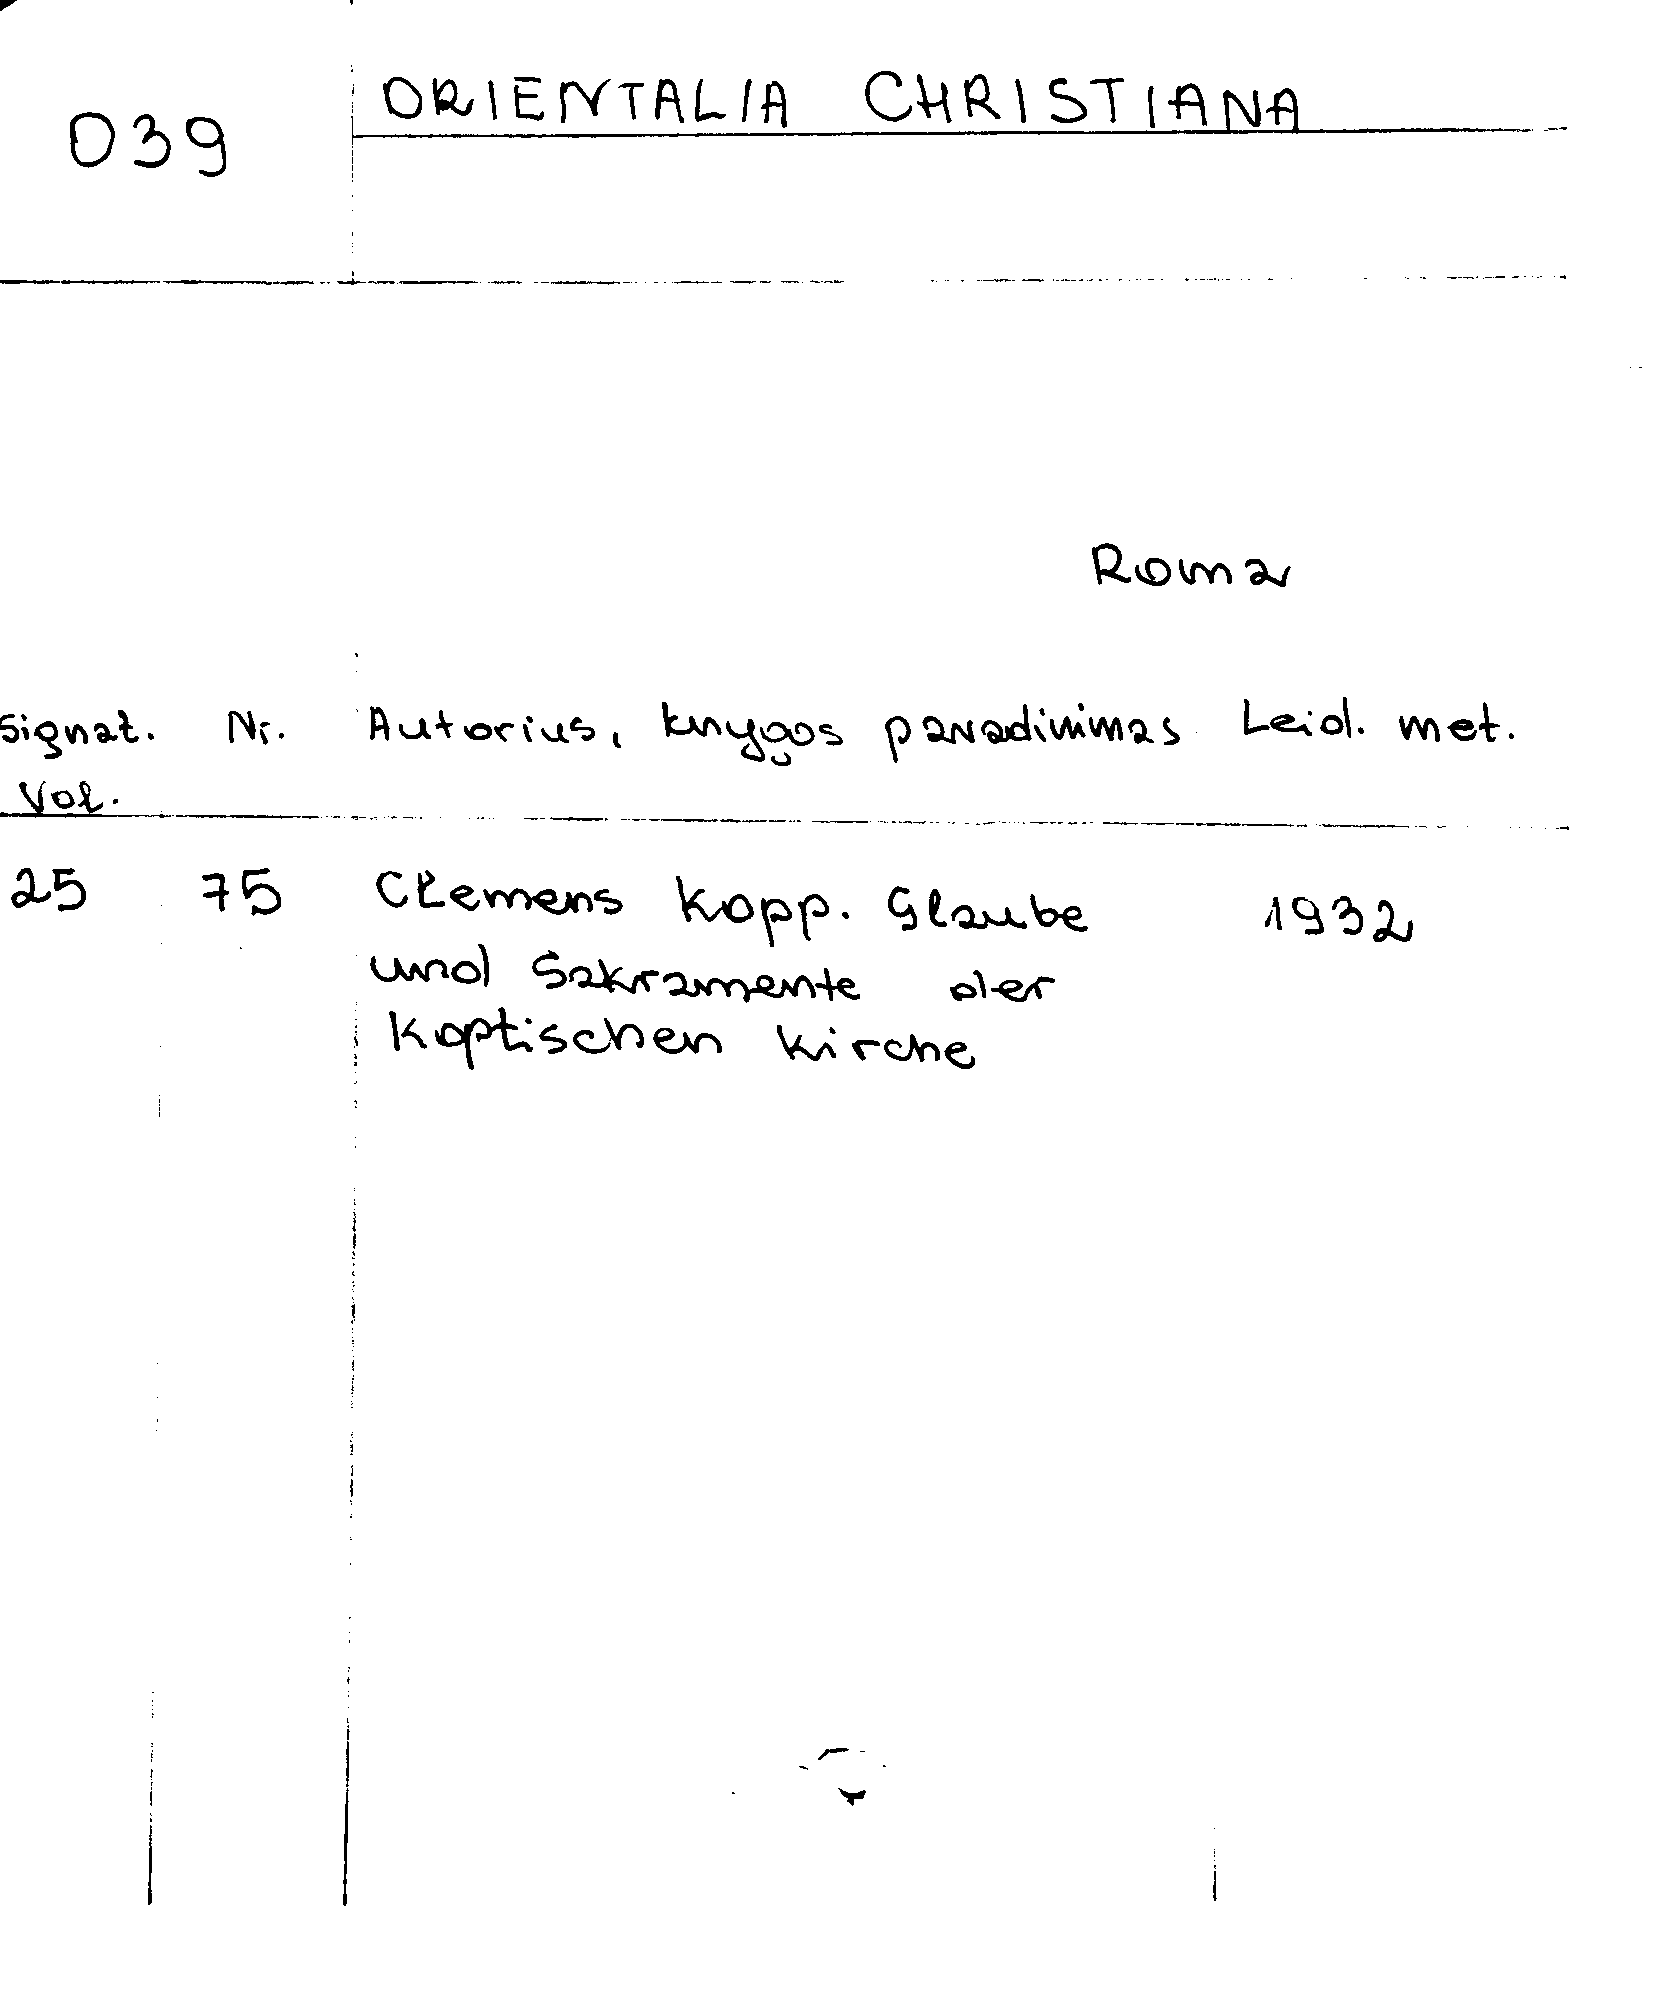 039
ORIENTALIA CHRISTIANA
Roma
Signat. Nr. Autorius, knygos pavadinimas Leid. met.
Vol.
25 75 Clemens Kopp. Glaube 1932
und Sakramente der
Koptischen Kirche